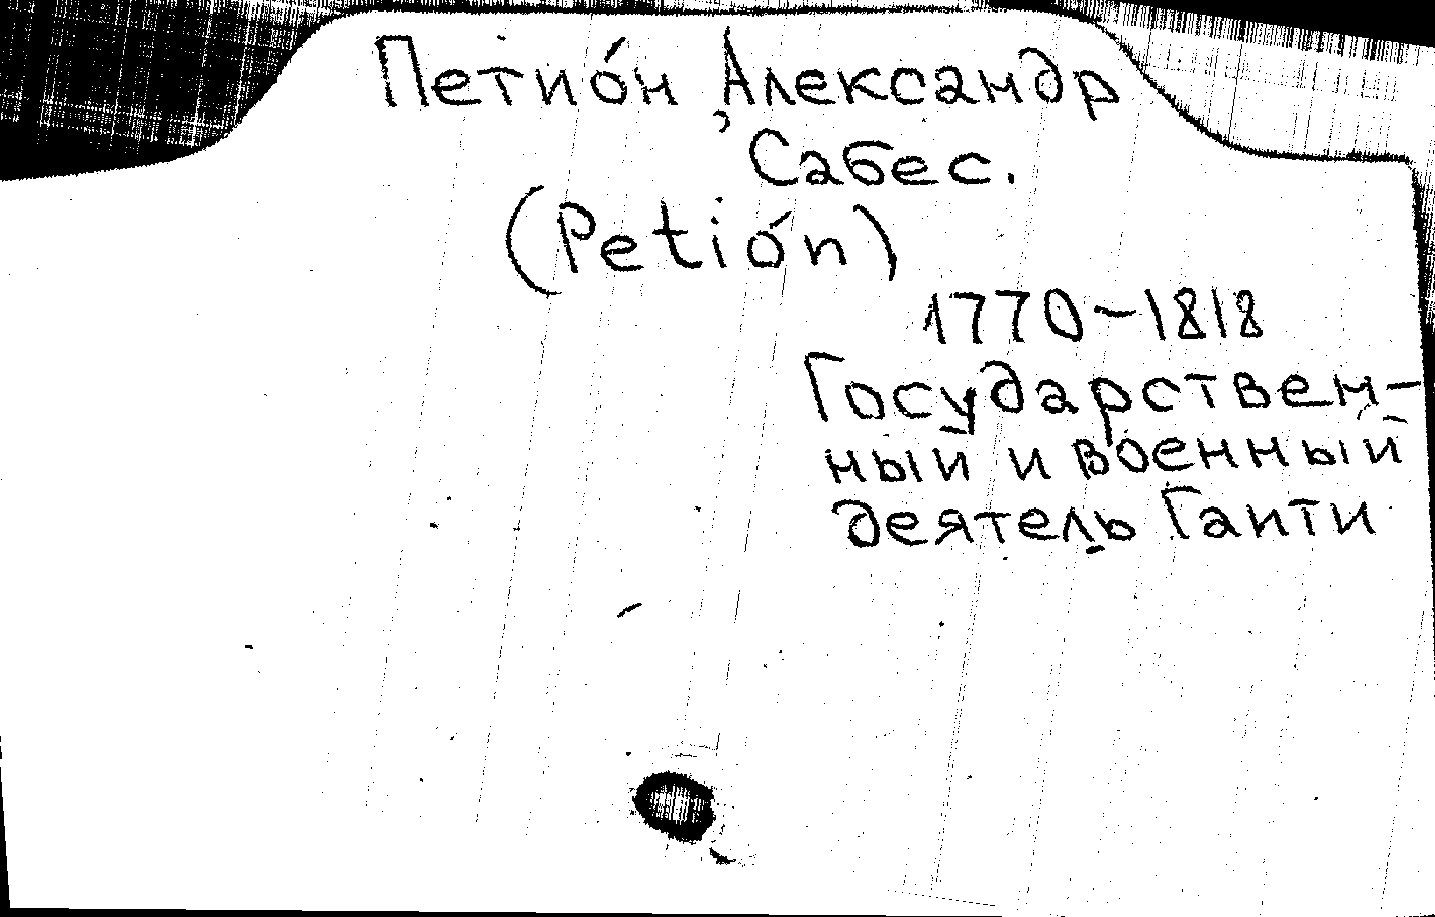 Петио́н, Александр
Сабес.
(Petión)
1770-1818
Государствен-
ный и военный
деятель Гаити